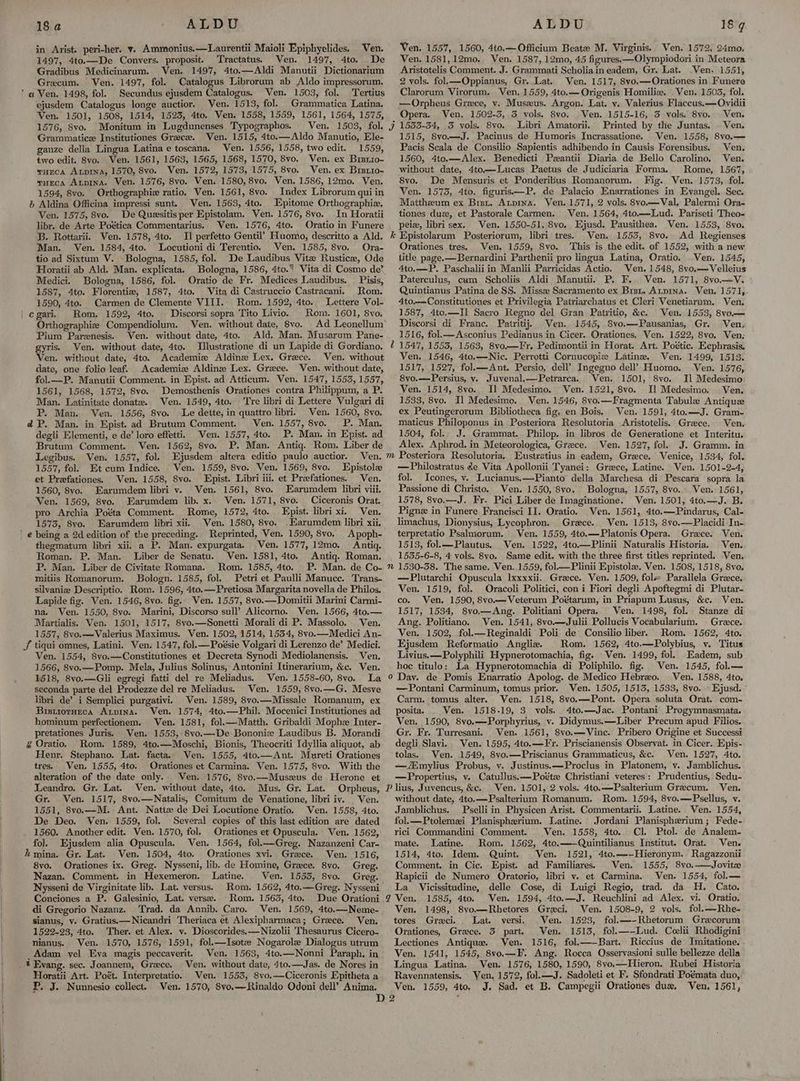 18 a ALDU
in Arist. peri-her. v. Ammonius.—Laurentii Maioli Epiphyelides. Ven.
1497, 4to.—De Convers. proposit. Tractatus. Ven. 1497, 4to. De
Gradibus Medicinarum. Ven. 1497, 4to.—Aldi Manutii Dictionarium
Græcum. Ven. 1497, fol. Catalogus Librorum ab Aldo impressorum.
a Ven. 1498, fol. Secundus ejusdem Catalogus. Ven. 1503, fol. Tertius
ejusdem Catalogus longe auctior. Ven. 1513, fol. Grammatica Latina.
Ven. 1501, 1508, 1514, 1523, 4to. Ven. 1558, 1559, 1561, 1564, 1575,
1576, 8vo. Monitum in Lugdunenses Typographos. Ven. 1503, fol.
Grammaticæ Institutiones Græcæ. Ven. 1515, 4to.—Aldo Manutio, Ele-
ganze della Lingua Latina e toscana. Ven. 1556, 1558, two edit. 1559,
two edit. 8vo. Ven. 1561, 1563, 1565, 1568, 1570, 8vo. Ven. ex Biblio-
theca Aldina, 1570, 8vo. Ven. 1572, 1573, 1575, 8vo. Ven. ex Biblio-
theca Aldina. Ven. 1576, 8vo. Ven. 1580, 8vo. Ven. 1586, 12mo. Ven.
1594, 8vo. Orthographiæ ratio. Ven. 1561, 8vo. Index Librorum qui in
b Aldina Officina impressi sunt. Ven. 1563, 4to. Epitome Orthographiæ,
Ven. 1575, 8vo. De Quæsitis per Epistolam. Ven. 1576, 8vo. In Horatii
libr. de Arte Poëtica Commentarius. Ven. 1576, 4to. Oratio in Funere
B. Rottarii. Ven. 1578, 4to. Il perfetto Gentil' Huomo, descritto a Ald.
Man. Ven. 1584, 4to. Locutioni di Terentio. Ven. 1585, 8vo. Ora-
tio ad Sixtum V. Bologna, 1585, fol. De Laudibus Vitæ Rusticæ, Ode
Horatii ab Ald. Man. explicata. Bologna, 1586, 4to. Vita di Cosmo de'
Medici. Bologna, 1586, fol. Oratio de Fr. Medices Laudibus. Pisis,
1587, 4to. Florentiæ, 1587, 4to. Vita di Castruccio Castracani. Rom.
1590, 4to. Carmen de Clemente VIII. Rom. 1592, 4to. Lettere Vol-
c gari. Rom. 1592, 4to. Discorsi sopra Tito Livio. Rom. 1601, 8vo.
Orthographiæ Compendiolum. Ven. without date, 8vo. Ad Leonellum
Pium Parænesis. Ven. without date, 4to. Ald. Man. Musarum Pane-
gyris. Ven. without date, 4to. Illustratione di un Lapide di Gordiano.
Ven. without date, 4to. Academiæ Aldinæ Lex. Græce. Ven. without
date, one folio leaf. Academiæ Aldinæ Lex. Græce. Ven. without date,
fol.—P. Manutii Comment. in Epist. ad Atticum. Ven. 1547, 1553, 1557,
1561, 1568, 1572, 8vo. Demosthenis Orationes contra Philippum, a P.
Man. Latinitate donatæ. Ven. 1549, 4to. Tre libri di Lettere Vulgari di
P. Man. Ven. 1556, 8vo. Le dette, in quattro libri. Ven. 1560, 8vo.
d P. Man. in Epist. ad Brutum Comment. Ven. 1557, 8vo. P. Man.
degli Elementi, e de' loro effetti. Ven. 1557, 4to. P. Man. in Epist. ad
Brutum Comment. Ven. 1562, 8vo. P. Man. Antiq. Rom. Liber de
Legibus. Ven. 1557, fol. Ejusdem altera editio paulo auctior. Ven.
1557, fol. Et cum Indice. Ven. 1559, 8vo. Ven. 1569, 8vo. Epistolæ
et Præfationes. Ven. 1558, 8vo. Epist. Libri iii. et Præfationes. Ven.
1560, 8vo. Earumdem libri v. Ven. 1561, 8vo. Earumdem libri viii.
Ven. 1569, 8vo. Earumdem lib. x. Ven. 1571, 8vo. Ciceronis Orat.
pro Archia Poëta Comment. Rome, 1572, 4to. Epist. libri xi. Ven.
1573, 8vo. Earumdem libri xii. Ven. 1580, 8vo. Earumdem libri xii.
e being a 2d edition of the preceding. Reprinted, Ven. 1590, 8vo. Apoph-
thegmatum libri xii. a P. Man. expurgata. Ven. 1577, 12mo. Antiq.
Roman. P. Man. Liber de Senatu. Ven. 1581, 4to. Antiq. Roman.
P. Man. Liber de Civitate Romana. Rom. 1585, 4to. P. Man. de Co-
mitiis Romanorum. Bologn. 1585, fol. Petri et Paulli Manucc. Trans-
silvaniæ Descriptio. Rom. 1596, 4to.—Pretiosa Margarita novella de Philos.
Lapide fig. Ven. 1546, 8vo. fig. Ven. 1557, 8vo.—Domitii Marini Carmi-
na. Ven. 1550, 8vo. Marini, Discorso sull' Alicorno. Ven. 1566, 4to.—
Martialis. Ven. 1501, 1517, 8vo.—Sonetti Morali di P. Massolo. Ven.
1557, 8vo.—Valerius Maximus. Ven. 1502, 1514, 1534, 8vo.—Medici An-
f tiqui omnes, Latini. Ven. 1547, fol.—Poësie Volgari di Lorenzo de' Medici.
Ven. 1554, 8vo.—Constitutiones et Decreta Synodi Mediolanensis. Ven.
1566, 8vo.—Pomp. Mela, Julius Solinus, Antonini Itinerarium, &c. Ven.
1518, 8vo.—Gli egregi fatti del re Meliadus. Ven. 1558-60, 8vo. La
seconda parte del Prodezze del re Meliadus. Ven. 1559, 8vo.—G. Mesve
libri de' i Semplici purgativi. Ven. 1589, 8vo.—Missale Romanum, ex
Bibliotheca Aldina. Ven. 1574, 4to.—Phil. Mocenici Institutiones ad
hominum perfectionem. Ven. 1581, fol.—Matth. Gribaldi Mophæ Inter-
pretationes Juris. Ven. 1553, 8vo.—De Bononiæ Laudibus B. Morandi
g Oratio. Rom. 1589, 4to.—Moschi, Bionis, Theocriti Idyllia aliquot, ab
Henr. Stephano. Lat. facta. Ven. 1555, 4to.—Ant. Mureti Orationes
tres. Ven. 1555, 4to. Orationes et Carmina. Ven. 1575, 8vo. With the
alteration of the date only. Ven. 1576, 8vo.—Musæus de Herone et
Leandro. Gr. Lat. Ven. without date, 4to. Mus. Gr. Lat. Orpheus,
Gr. Ven. 1517, 8vo.—Natalis, Comitum de Venatione, libri iv. Ven.
1551, 8vo.—M. Ant. Nattæ de Dei Locutione Oratio. Ven. 1558, 4to.
De Deo. Ven. 1559, fol. Several copies of this last edition are dated
1560. Another edit. Ven. 1570, fol. Orationes et Opuscula. Ven. 1562,
fol. Ejusdem alia Opuscula. Ven. 1564, fol.—Greg. Nazanzeni Car-
h mina. Gr. Lat. Ven. 1504, 4to. Orationes xvi. Græce. Ven. 1516,
8vo. Orationes ix. Greg. Nysseni, lib. de Homine, Græce. 8vo. Greg.
Nazan. Comment. in Hexemeron. Latine. Ven. 1553, 8vo. Greg.
Nysseni de Virginitate lib. Lat. versus. Rom. 1562, 4to.—Greg. Nysseni
Conciones a P. Galesinio, Lat. versæ. Rom. 1563, 4to. Due Orationi
di Gregorio Nazanz. Trad. da Annib. Caro. Ven. 1569, 4to.—Neme-
sianus, v. Gratius.—Nicandri Theriaca et Alexipharmaca; Græce. Ven.
1522-23, 4to. Ther. et Alex. v. Dioscorides.—Nizolii Thesaurus Cicero-
nianus. Ven. 1570, 1576, 1591, fol.—Isotæ Nogarolæ Dialogus utrum
Adam vel Eva magis peccaverit. Ven. 1563, 4to.—Nonni Paraph. in
i Evang. sec. Joannem, Græce. Ven. without date, 4to.—Jas. de Nores in
Horatii Art. Poët. Interpretatio. Ven. 1553, 8vo.—Ciceronis Epitheta a
P. J. Nunnesio collect. Ven. 1570, 8vo.—Rinaldo Odoni dell' Anima.
ALDU 18 q
Ven. 1557, 1560, 4to.—Officium Beatæ M. Virginis. Ven. 1572, 24mo.
Ven. 1581, 12mo. Ven. 1587, 12mo, 45 figures.—Olympiodori in Meteora
Aristotelis Comment. J. Grammati Scholia in eadem, Gr. Lat. Ven. 1551,
2 vols. fol.—Oppianus, Gr. Lat. Ven. 1517, 8vo.—Orationes in Funere
Clarorum Virorum. Ven. 1559, 4to.—Origenis Homiliæ. Ven. 1503, fol.
—Orpheus Græce, v. Musæus. Argon. Lat. v. Valerius Flaccus.—Ovidii
Opera. Ven. 1502-3, 3 vols. 8vo. Ven. 1515-16, 3 vols. 8vo. Ven.
j 1533-34, 3 vols. 8vo. Libri Amatorii. Printed by the Juntas. Ven.
1515, 8vo.—J. Pacinus de Humoris Incrassatione. Ven. 1558, 8vo.—
Pacis Scala de Consilio Sapientis adhibendo in Causis Forensibus. Ven.
1560, 4to.—Alex. Benedicti Pæantii Diaria de Bello Carolino. Ven.
without date, 4to.—Lucas Paetus de Judiciaria Forma. Rome, 1567,
8vo. De Mensuris et Ponderibus Romanorum. Fig. Ven. 1573, fol.
Ven. 1573, 4to. figuris.—P. de Palacio Enarrationes in Evangel. Sec.
Matthæum ex Bibl. Aldina. Ven. 1571, 2 vols. 8vo.—Val. Palermi Ora-
tiones duæ, et Pastorale Carmen. Ven. 1564, 4to.—Lud. Pariseti Theo-
peiæ, libri sex. Ven. 1550-51, 8vo. Ejusd. Pausithea. Ven. 1553, 8vo.
k Epistolarum Posteriorum, libri tres. Ven. 1553, 8vo. Ad Regienses
Orationes tres. Ven. 1559, 8vo. This is the edit. of 1552, with a new
title page.—Bernardini Parthenii pro lingua Latina, Oratio. Ven. 1545,
4to.—P. Paschalii in Manlii Parricidas Actio. Ven. 1548, 8vo.—Velleius
Paterculus, cum Scholiis Aldi Manutii. P. F. Ven. 1571, 8vo.—V.
Quintianus Patina de SS. Missæ Sacramento ex Bibl. Aldina. Ven. 1571,
4to.—Constitutiones et Privilegia Patriarchatus et Cleri Venetiarum. Ven.
1587, 4to.—Il Sacro Regno del Gran Patritio, &c. Ven. 1553, 8vo.—
Discorsi di Franc. Patritij. Ven. 1545, 8vo.—Pausanias, Gr. Ven.
1516, fol.—Asconius Pedianus in Cicer. Orationes. Ven. 1522, 8vo. Ven.
l 1547, 1553, 1563, 8vo.—Fr. Pedimontii in Horat. Art. Poëtic. Ecphrasis,
Ven. 1546, 4to.—Nic. Perrotti Cornucopiæ Latinæ. Ven. 1499, 1513.
1517, 1527, fol.—Ant. Persio, dell' Ingegno dell' Huomo. Ven. 1576,
8vo.—Persius, v. Juvenal.—Petrarca. Ven. 1501, 8vo. Il Medesimo
Ven. 1514, 8vo. Il Medesimo. Ven. 1521, 8vo. Il Medesimo. Ven.
1533, 8vo. Il Medesimo. Ven. 1546, 8vo.—Fragmenta Tabulæ Antiquæ
ex Peutingerorum Bibliotheca fig. en Bois. Ven. 1591, 4to.—J. Gram-
maticus Philoponus in Posteriora Resolutoria Aristotelis. Græce. Ven.
1504, fol. J. Grammat. Philop. in libros de Generatione et Interitu.
Alex. Aphrod. in Meteorologica, Græce. Ven. 1527, fol. J. Gramm. in
m Posteriora Resolutoria. Eustratius in eadem, Græce. Venice, 1534, fol.
—Philostratus de Vita Apollonii Tyanei: Græce, Latine. Ven. 1501-2-4,
fol. Icones, v. Lucianus.—Pianto della Marchesa di Pescara sopra la
Passione di Christo. Ven. 1550, 8vo. Bologna, 1557, 8vo. Ven. 1561,
1578, 8vo.—J. Fr. Pici Liber de Imaginatione. Ven. 1501, 4to.—J. B.
Pignæ in Funere Francisci II. Oratio. Ven. 1561, 4to.—Pindarus, Cal-
limachus, Dionysius, Lycophron. Græce. Ven. 1513, 8vo.—Placidi In-
terpretatio Psalmorum. Ven. 1559, 4to.—Platonis Opera. Græce. Ven.
1513, fol.—Plautus. Ven. 1522, 4to.—Plinii Naturalis Historia. Ven.
1535-6-8, 4 vols. 8vo. Same edit. with the three first titles reprinted. Ven.
n 1530-38. The same. Ven. 1559, fol.—Plinii Epistolæ. Ven. 1508, 1518, 8vo.
—Plutarchi Opuscula lxxxxii. Græce. Ven. 1509, fol. Parallela Græce,
Ven. 1519, fol. Oracoli Politici, con i Fiori degli Apoftegmi di Plutar-
co. Ven. 1590, 8vo.—Veterum Poëtarum, in Priapum Lusus, &c. Ven.
1517, 1534, 8vo.—Ang. Politiani Opera. Ven. 1498, fol. Stanze di
Ang. Politiano. Ven. 1541, 8vo.—Julii Pollucis Vocabularium. Græce.
Ven. 1502, fol.—Reginaldi Poli de Consilio liber. Rom. 1562, 4to.
Ejusdem Reformatio Angliæ. Rom. 1562, 4to.—Polybius, v. Titus
Livius.—Polyphili Hypnerotomachia, fig. Ven. 1499, fol. Eadem, sub
hoc titulo: La Hypnerotomachia di Poliphilo. fig. Ven. 1545, fol.—
o Dav. de Pomis Enarratio Apolog. de Medico Hebræo. Ven. 1588, 4to.
—Pontani Carminum, tomus prior. Ven. 1505, 1513, 1533, 8vo. Ejusd.
Carm. tomus alter. Ven. 1518, 8vo.—Pont. Opera soluta Orat. com-
posita. Ven. 1518-19, 3 vols. 4to.—Jac. Pontani Progymnasmata.
Ven. 1590, 8vo.—Porphyrius, v. Didymus.—Liber Precum apud Filios.
Gr. Fr. Turresani. Ven. 1561, 8vo.—Vinc. Pribero Origine et Successi
degli Slavi. Ven. 1595, 4to.—Fr. Priscianensis Observat. in Cicer. Epis-
tolas. Ven. 1549, 8vo.—Priscianus Grammaticus, &c. Ven. 1527, 4to.
—Æmylius Probus, v. Justinus.—Proclus in Platonem, v. Jamblichus.
—Propertius, v. Catullus.—Poëtæ Christiani veteres: Prudentius, Sedu-
p lius, Juvencus, &c. Ven. 1501, 2 vols. 4to.—Psalterium Græcum. Ven.
without date, 4to.—Psalterium Romanum. Rom. 1594, 8vo.—Psellus, v.
Jamblichus. Pselli in Physicen Arist. Commentarii. Latine. Ven. 1554,
fol.—Ptolemæi Planisphærium. Latine. Jordani Planisphærium; Fede-
rici Commandini Comment. Ven. 1558, 4to. Cl. Ptol. de Analem-
mate. Latine. Rom. 1562, 4to.—Quintilianus Institut. Orat. Ven.
1514, 4to. Idem. Quint. Ven. 1521, 4to.—Hieronym. Ragazzonii
Comment. in Cic. Epist. ad Familiares. Ven. 1555, 8vo.—Jovitæ
Rapicii de Numero Oratorio, libri v. et Carmina. Ven. 1554, fol.—
La Vicissitudine, delle Cose, di Luigi Regio, trad. da H. Cato.
q Ven. 1585, 4to. Ven. 1594, 4to.—J. Reuchlini ad Alex. vi. Oratio.
Ven. 1498, 8vo—Rhetores Græci. Ven. 1508-9, 2 vols. fol.—Rhe-
tores Græci. Lat. versi. Ven. 1523, fol.—Rhetorum Græcorum
Orationes, Græce. 3 part. Ven. 1513, fol.—Lud. Cœlii Rhodigini
Lectiones Antiquæ. Ven. 1516, fol.—Bart. Riccius de Imitatione.
Ven. 1541, 1545, 8vo.—F. Ang. Rocca Osservasioni sulle bellezze della
Lingua Latina. Ven. 1576, 1580, 1590, 8vo.—Hieron. Rubei Historia
Ravennatensis. Ven. 1572, fol.—J. Sadoleti et F. Sfondrati Poëmata duo,
Ven. 1559, 4to. J. Sad. et B. Campegii Orationes duæ. Ven. 1561,
D 2